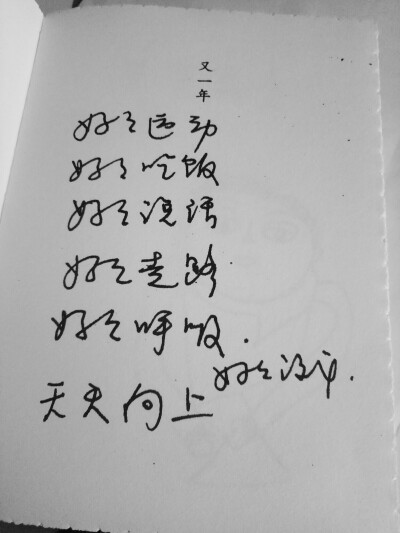 又一年
好好运动
好好吃饭
好好说话
好好走路
好好呼吸.
好好设计.
天天向上